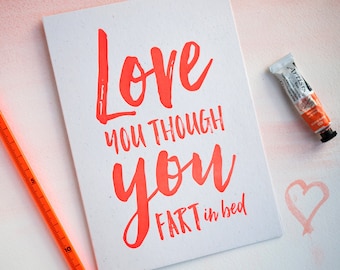 Love
YOU THOUGH
you
FART in bed